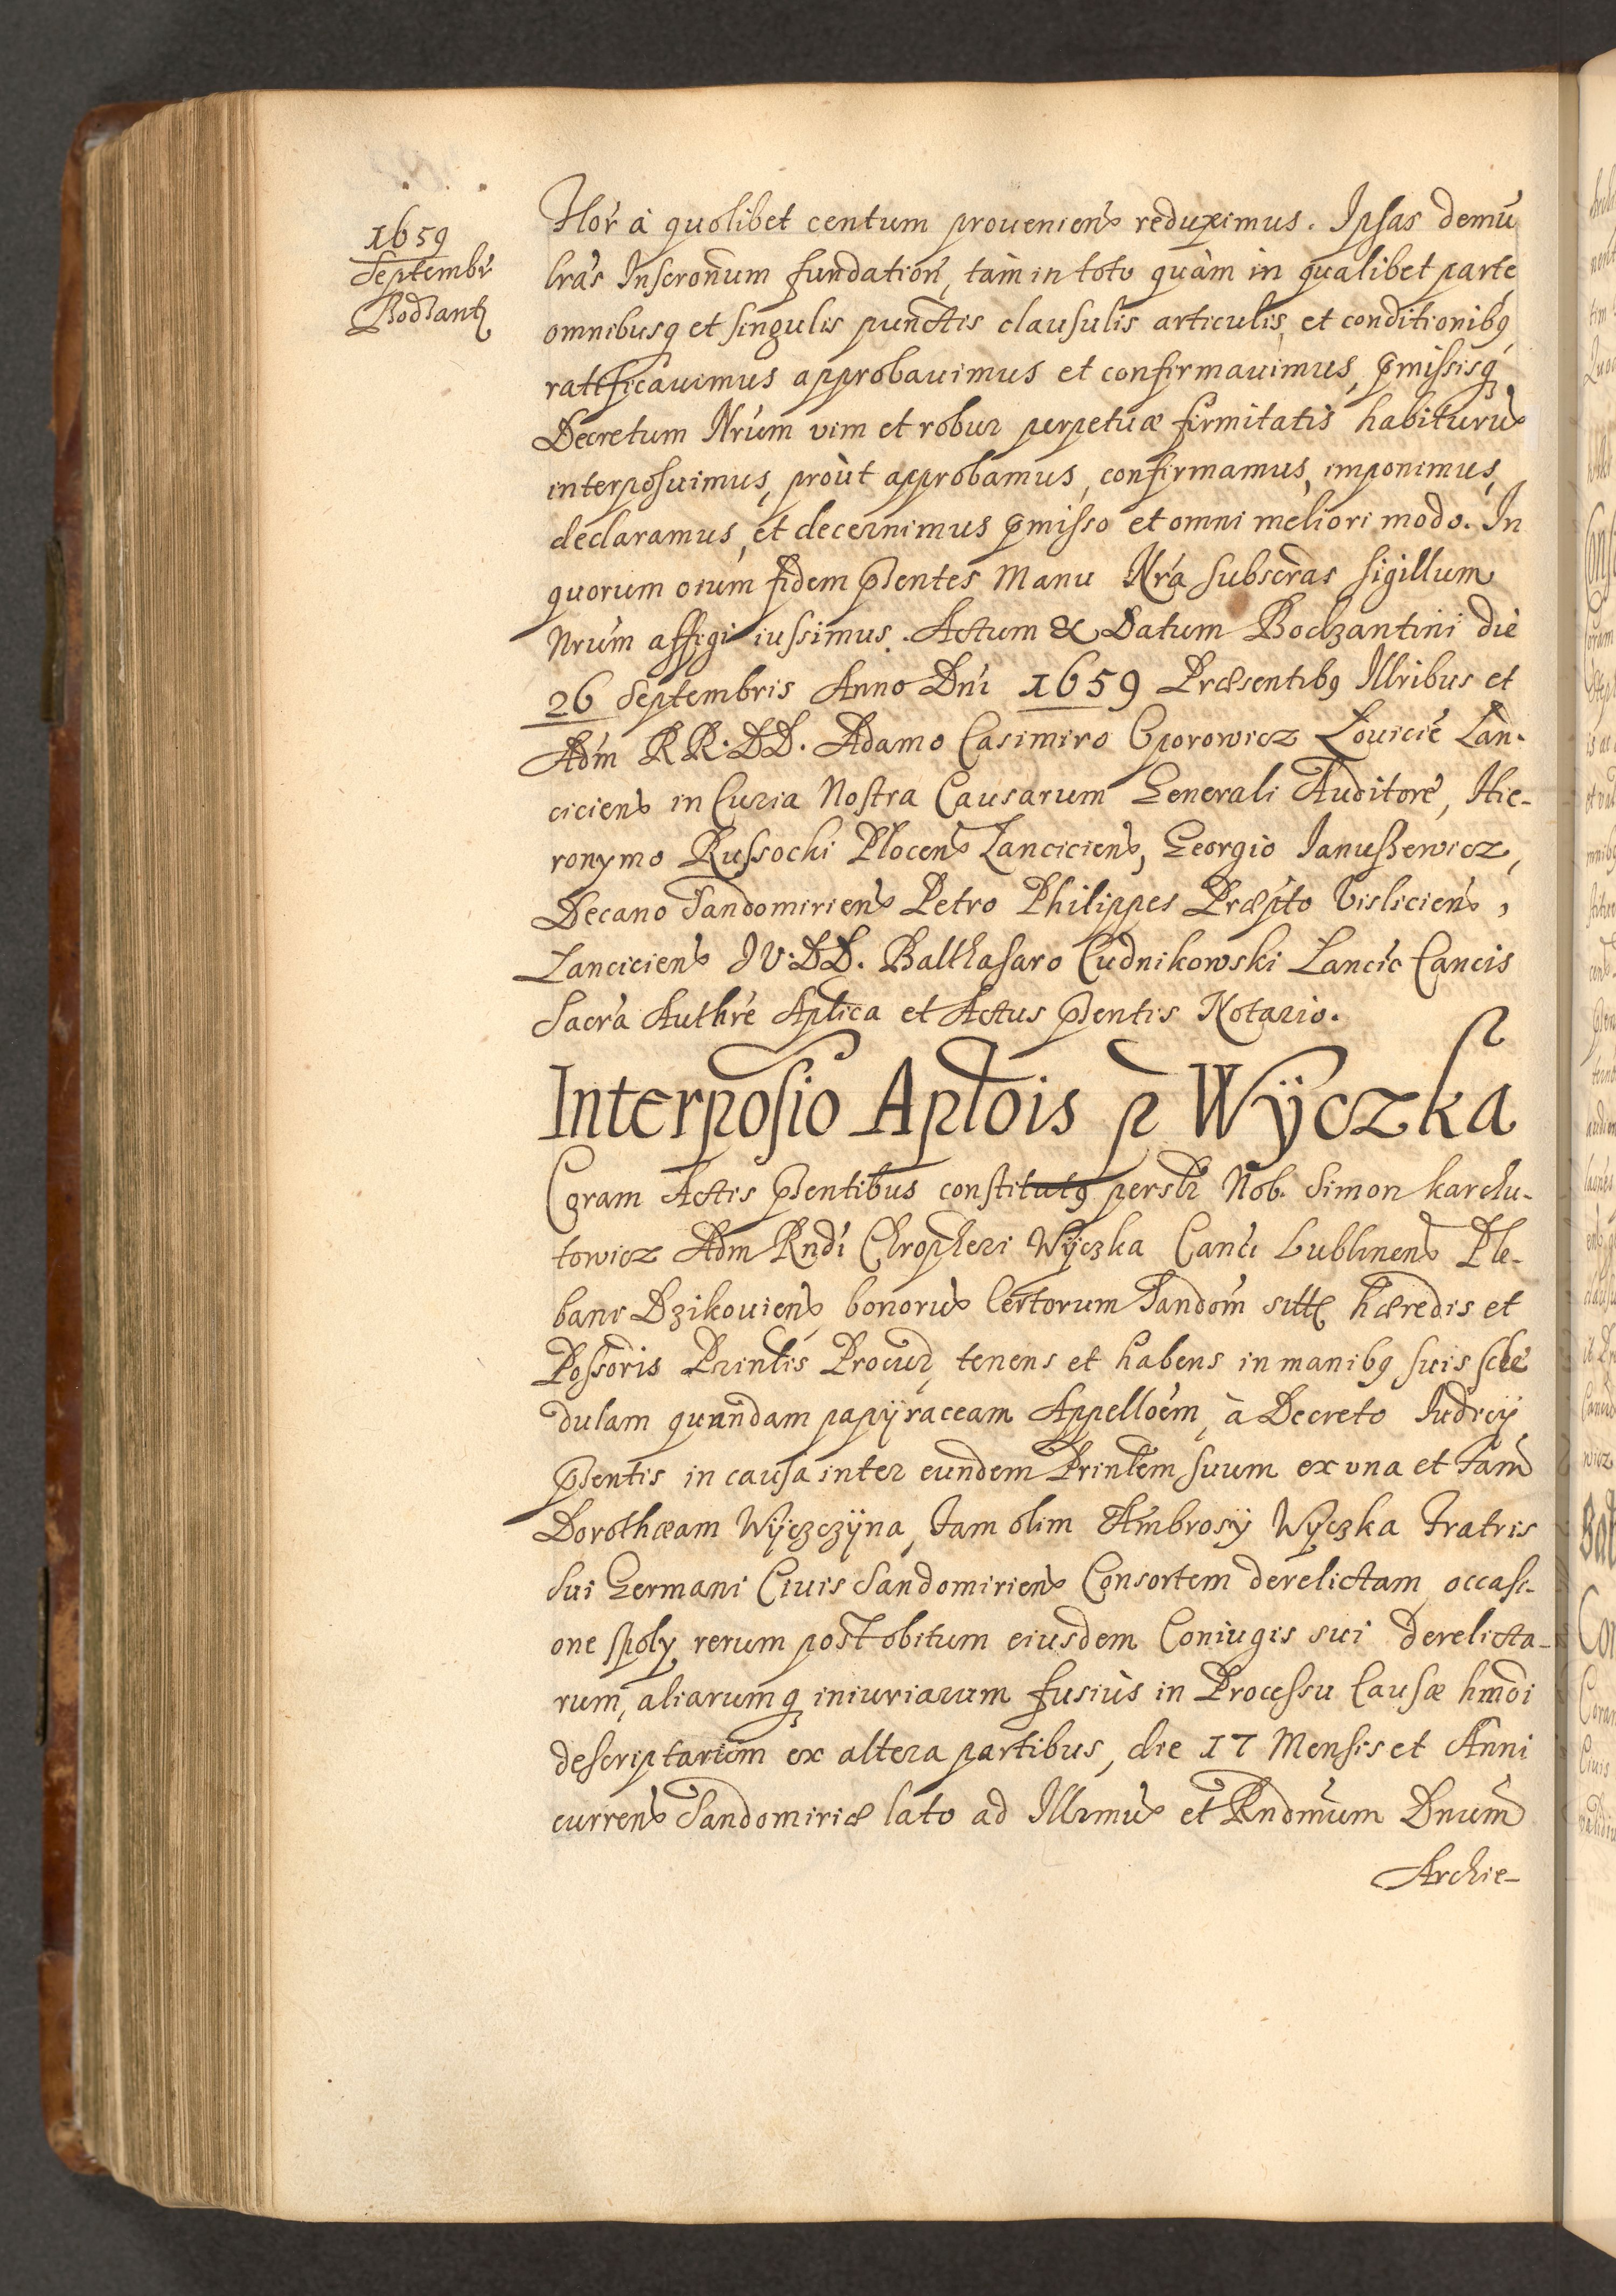 1659
Septembr
Bodzant
Flor à quolibet centum prouenien reduximus. Ipsas demũ
lrãs Inscronũm fundation, tàm in toto quàm in qualibet parte
omnibusq et singulis punctis clausulis articulis, et conditionibq
ratificauimus approbauimus et confirmauimus, pmissisq
Decretum Nrũm vim et robur perpetuæ firmitatis habiturũ
interposuimus, proùt approbamus, confirmamus, imponimus,
declaramus, et decernimus pmisso et omni meliori modo. In
quorum oium fidem pñtes Manu Nrã subscrãs sigillum
Nrũm affigi iussimus. Actum & Datum Bodzantini die
26 Septembris Anno Dni 1659 Præsentibq Illribus et
Adm RR. DD. Adamo Casimiro Oporowicz Louicien Lan-
cicien in Curia Nostra Causarum Generali Auditore, Hie-
ronymo Russocki Plocen Lancicien, Georgio Ianuszewicz,
Decano Sandomirien Petro Philippes Præpto Vislicien,
Lancicien IV.DD. Balthasaro Cudnikowski Lancic Cancis
Sacrã Authre Aplica et Actus pñtis Notario.
Interposio Aplõis p Wÿczka
Coram Actis pñtibus constitutq persır Nob. Simon karchu-
towicz Adm Rndi Chropheri Wÿczka Canci Lublinen Ple-
bani Dzikouien, bonorũ Certorum Sandom sitt hæredis et
Possoris Prinlis Procur, tenens et habens in manibq suis sche
dulam quandam papÿraceam Appelloem, à Decreto Iudicÿ
pñtis in causa inter eundem Prinlem suum ex una et Fam
Dorothæam Wÿczczÿna, Iam olim Ambrosÿ Wÿczka Fratris
sui Germani Ciuis Sandomirien Consortem derelictam, occasi-
one spolÿ rerum post obitum eiusdem Coniugis sui derelicta-
rum, aliarumq iniuriarum fusiùs in Processu Causæ hmõi
descriptarum ex altera partibus, die 17 Mensis et Anni
curren Sandomiriæ lato ad Illrmũ et Rndmũm Dnum
Archie-